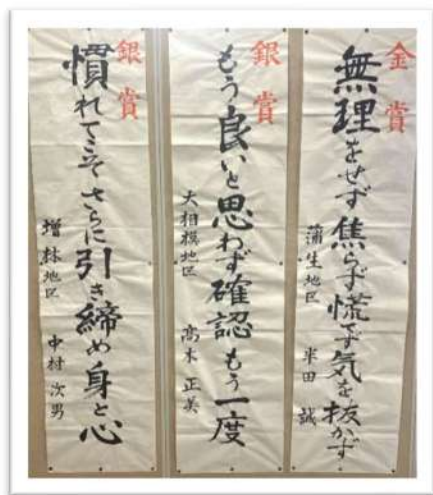 金賞
無理をせず焦らず慌てず気を抜かず
蒲生地区 半田 誠
銀賞
もう良いと思わず確認もう一度
大相模地区 高木 正美
銀賞
慣れてこそさらに引き締め身と心
増林地区 中村 次男